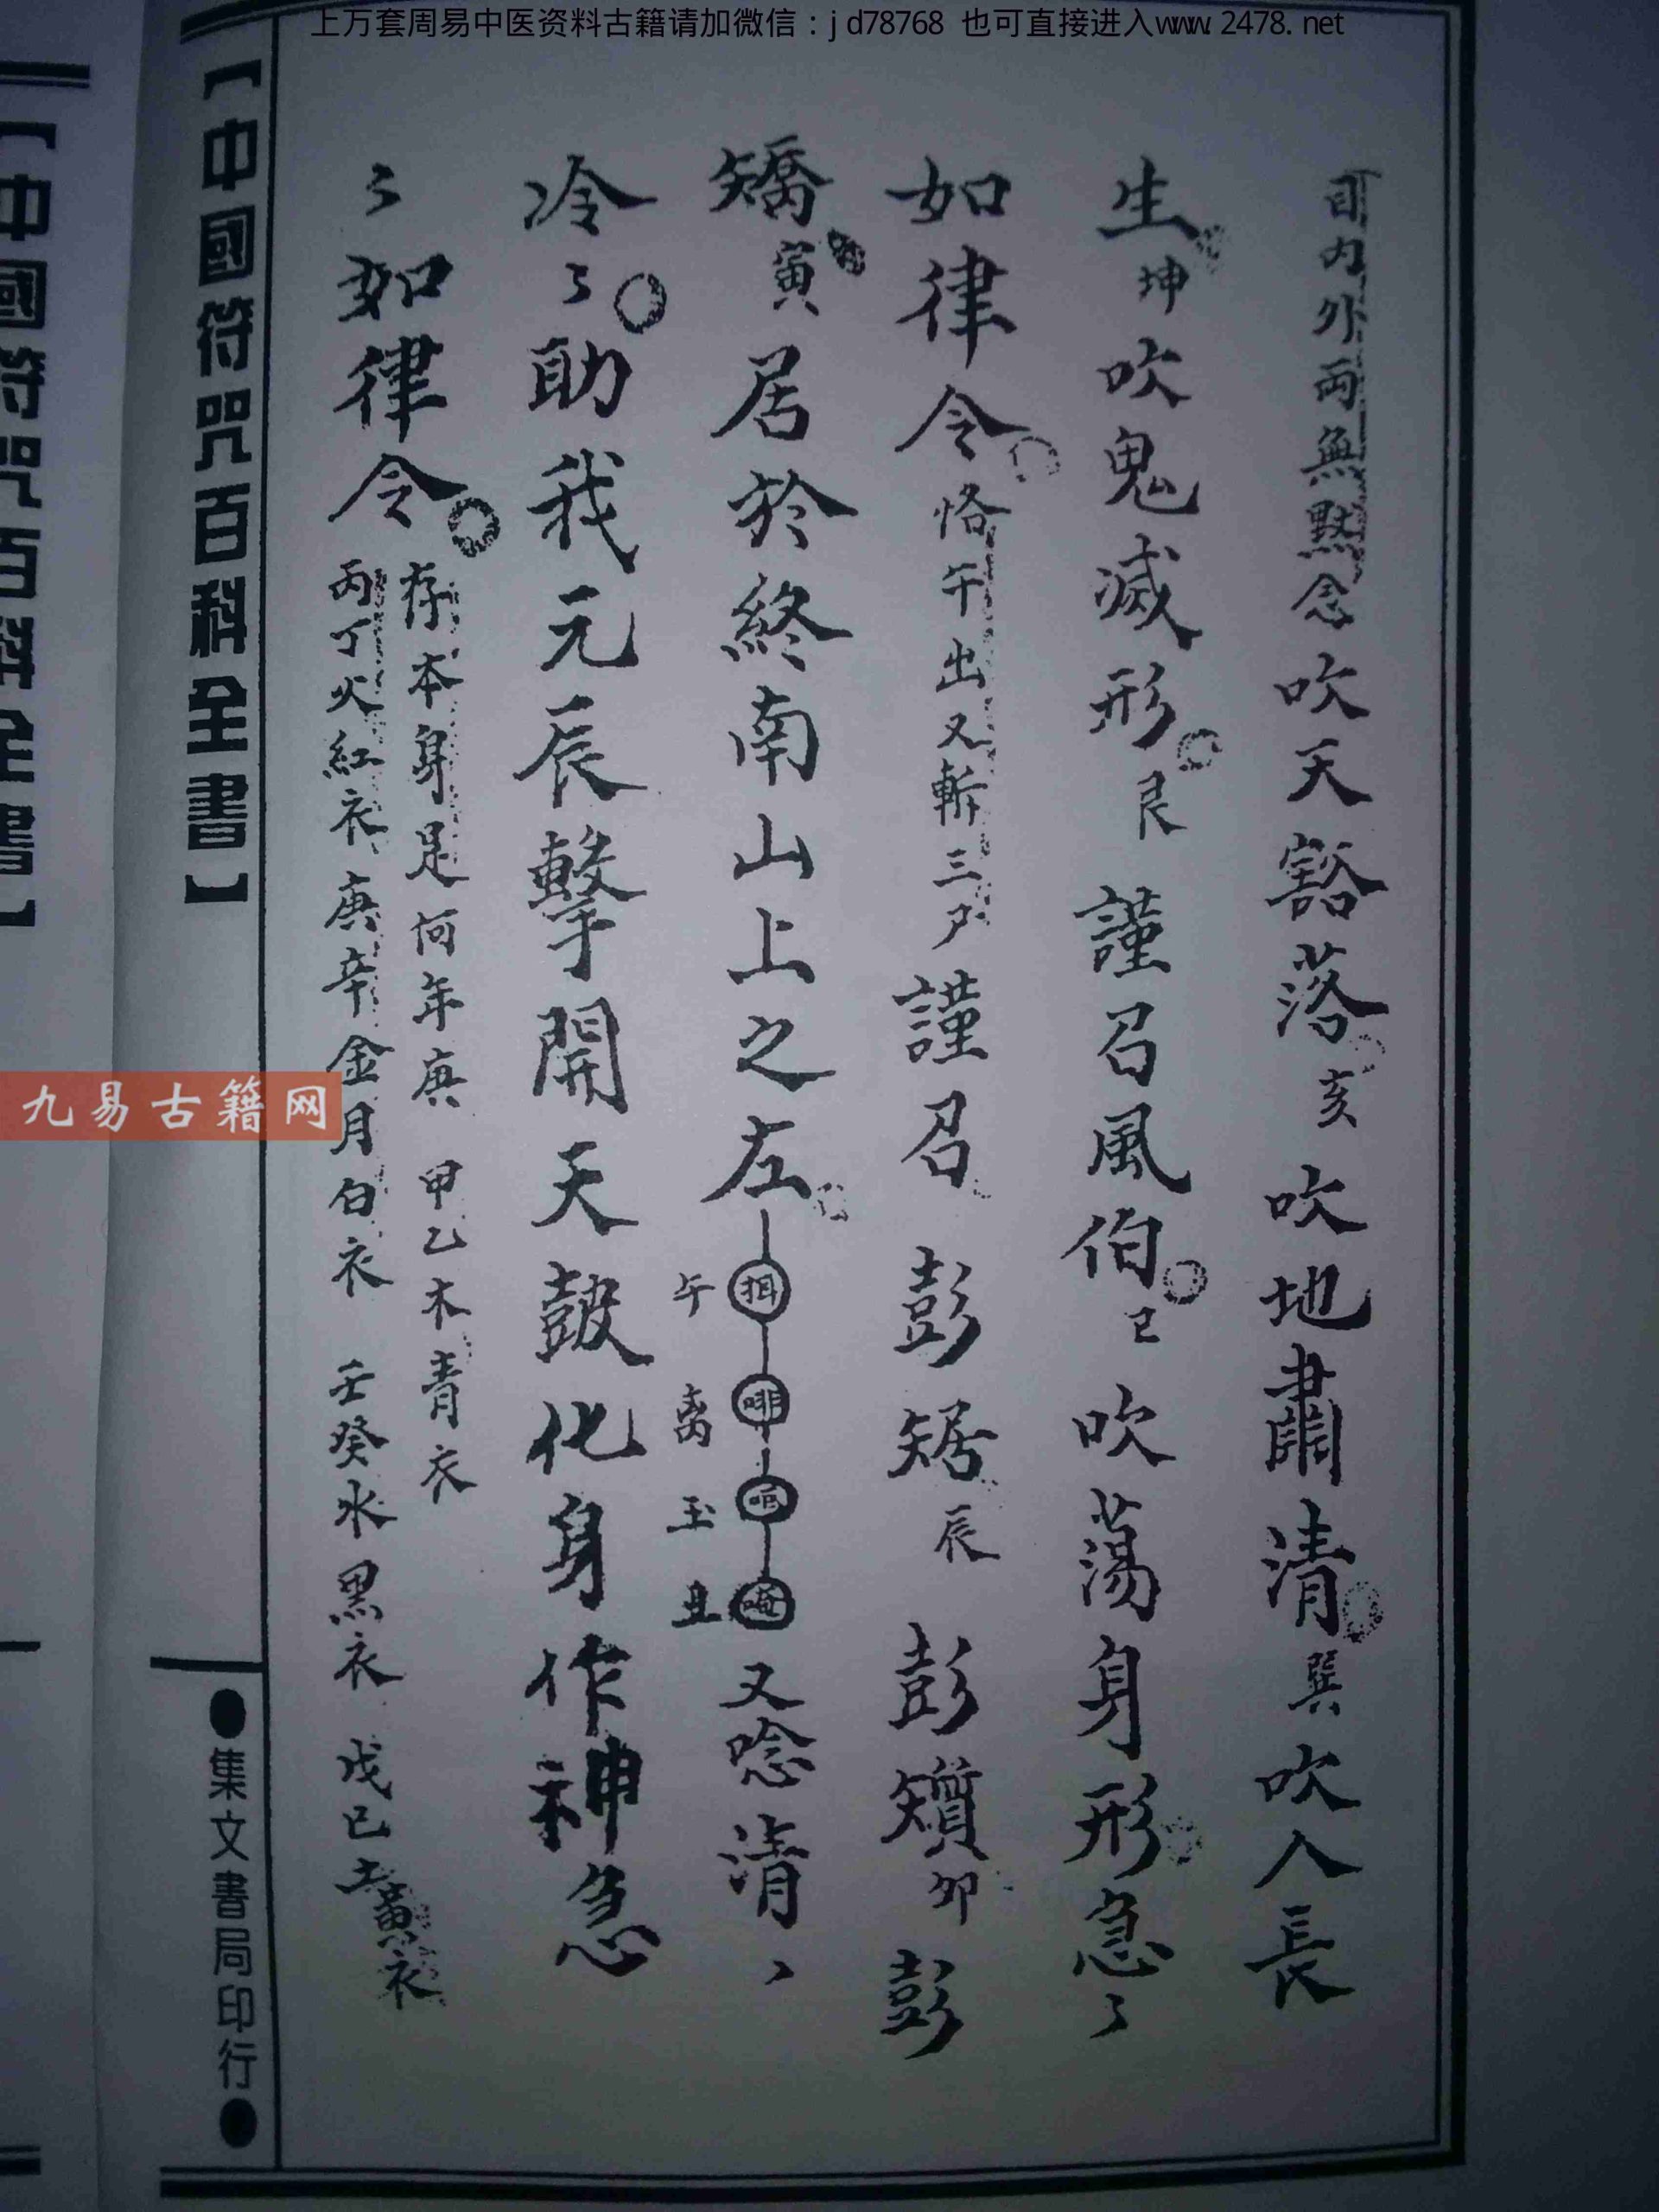 上万套周易中医资料古籍请加微信：jd78768 也可直接进入www.2478.net
目内外両無黙念吹天豁落亥吹地肅清巽吹人長
生坤吹鬼滅形艮謹召風伯巳吹蕩身形急〻
如律令恪午出又斬三尸謹召彭琚辰彭瓆卯彭
矯寅居於終南山上之左又唸清、
午离玉丑
冷〻助我元辰擊開天鼓化身作神急
〻如律令
存本身是何年庚甲乙木青衣
丙丁火紅衣庚辛金月白衣壬癸水黑衣戊己土黃衣
【中國符咒百科全書】
●集文書局印行●
九易古籍网
【中國符咒百科全書】